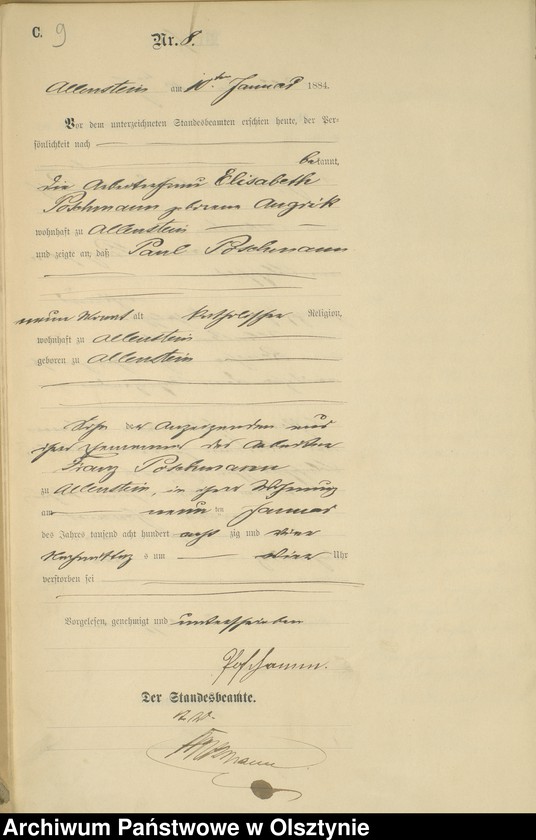 C. 9
Nr. 8.
Allenstein am 10ten Januar 1884.
Vor dem unterzeichneten Standesbeamten erschien heute, der Per-
sönlichkeit nach
bekannt,
die Arbeiterfrau Elisabeth
Poschmann geborene Angrik
wohnhaft zu Allenstein
und zeigte an, daß Paul Poschmann
neun Monat alt katholischer Religion,
wohnhaft zu Allenstein
geboren zu Allenstein
Sohn der Anzeigenden und
ihres Ehemannes des Arbeiter
Franz Poschmann
zu Allenstein, in ihrer Wohnung
am neun ten Januar
des Jahres tausend acht hundert acht zig und vier
Nachmittag s um vier Uhr
verstorben sei
Vorgelesen, genehmigt und unterschrieben
Poschmann.
Der Standesbeamte.
Archiwum Państwowe w Olsztynie